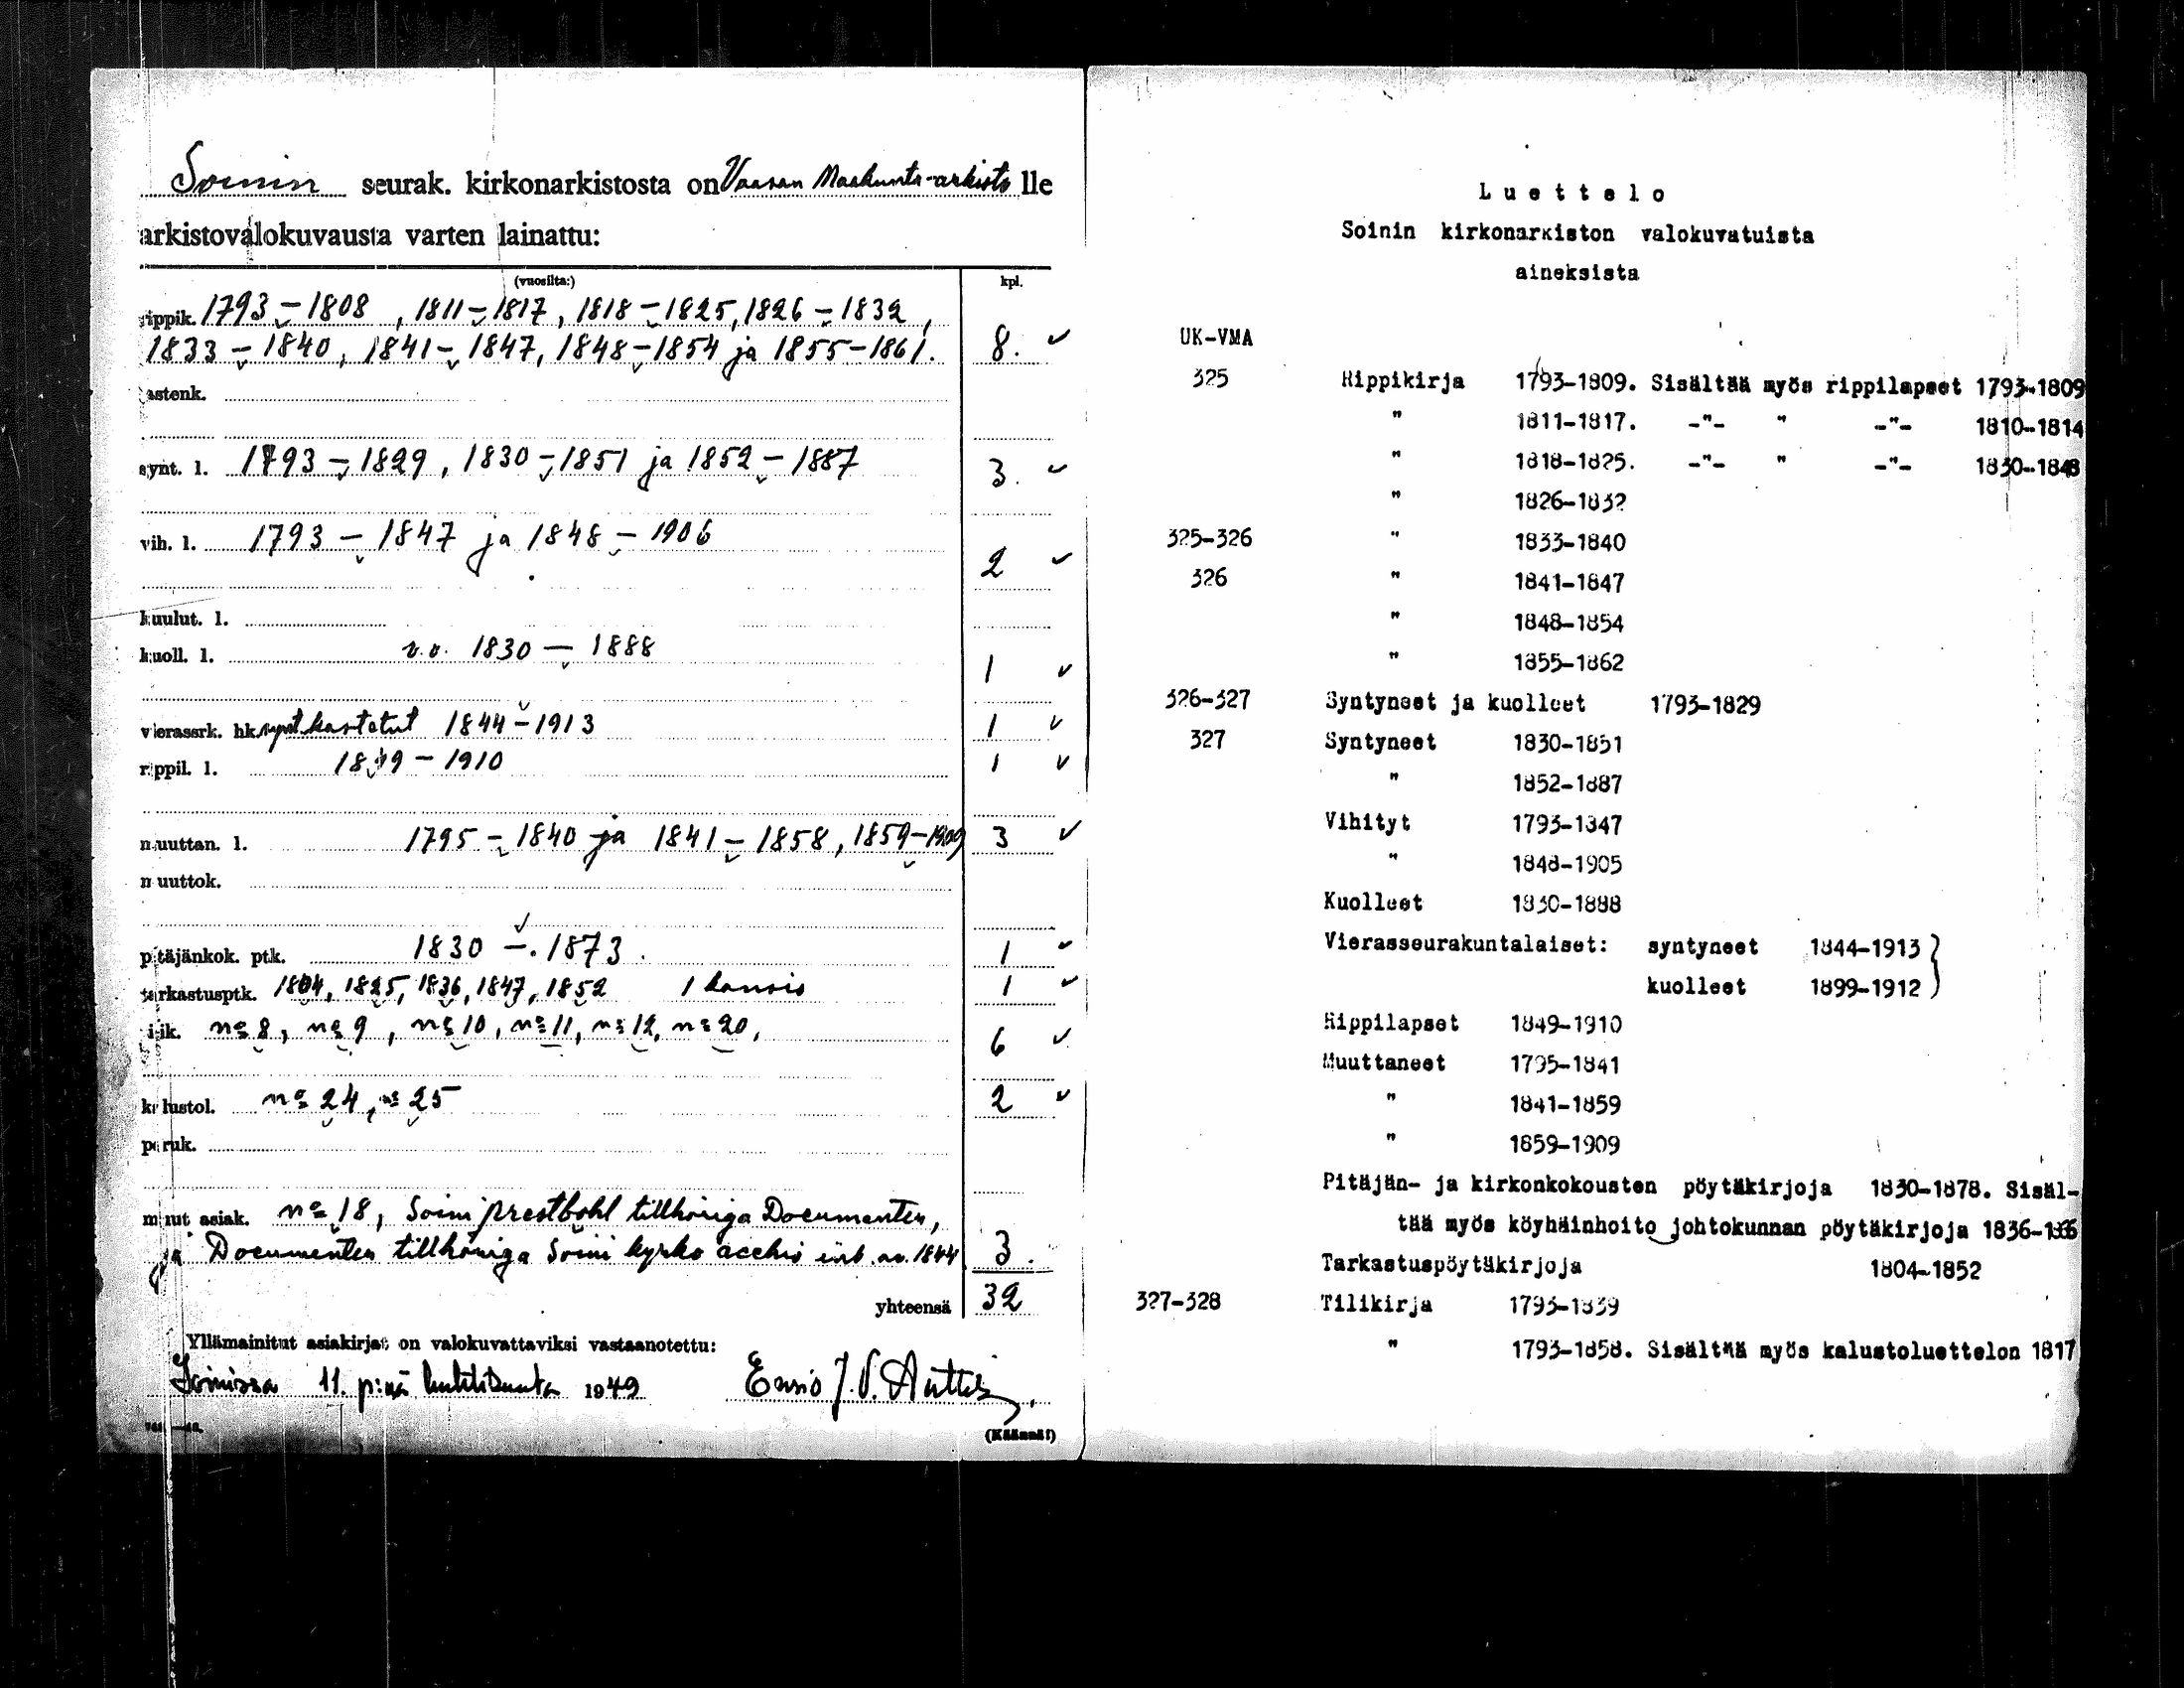 Soinin seurak. kirkonarkistosta on Vaasan Maakunta-arkisto lle
arkistovalokuvausta varten lainattu:
(vuosilta:) kpl.
rippik. 1793–1808, 1811–1817, 1818–1825, 1826–1832,
1833–1840, 1841–1847, 1848–1854 ja 1855–1861. 8.
kastenk.
synt. l. 1793–1829, 1830–1851 ja 1852–1887 3.
vih. l. 1793–1847 ja 1848–1906 2
kuulut. l.
kuoll. l. v.v. 1830–1888 1
vierassrk. hk. kastetut 1844–1913 1
rippil. l. 1849–1910 1
muuttan. l. 1795–1840 ja 1841–1858, 1859–1909 3
muuttok.
pitäjänkok. ptk. 1830–1873. 1
tarkastusptk. 1804, 1825, 1836, 1847, 1852 1 kansio 1
tilik. no 8, no 9, no 10, no 11, no 12, no 20, 6
kalustol. no 24, no 25 2
peruk.
muut asiak. no 18, Soini prestbohl tillhöriga Documenter,
ja Documenter tillhöriga Soini kyrko 1844 3.
yhteensä 32
Yllämainitut asiakirjat on valokuvattaviksi vastaanotettu:
Soinissa 11. p:nä huhtikuuta 1949 Ensio J.V.
(Käännä!)
Luettelo
Soinin kirkonarkiston valokuvatuista
aineksista
UK-VMA
325 Rippikirja 1793-1809. Sisältää myös rippilapset 1793-1809
" 1811-1817. -"- " -"- 1810-1814
" 1818-1825. -"- " -"- 1830-1848
" 1826-1832
325-326 " 1833-1840
326 " 1841-1847
" 1848-1854
" 1855-1862
326-327 Syntyneet ja kuolleet 1793-1829
327 Syntyneet 1830-1851
" 1852-1887
Vihityt 1793-1847
" 1848-1905
Kuolleet 1830-1888
Vierasseurakuntalaiset: syntyneet 1844-1913
kuolleet 1899-1912
Rippilapset 1849-1910
Muuttaneet 1795-1841
" 1841-1859
" 1859-1909
Pitäjän- ja kirkonkokousten pöytäkirjoja 1830-1878. Sisäl-
tää myös köyhäinhoito johtokunnan pöytäkirjoja 1836-
Tarkastuspöytäkirjoja 1804-1852
327-328 Tilikirja 1793-1839
" 1793-1858. Sisältää myös kalustoluettelon 1817